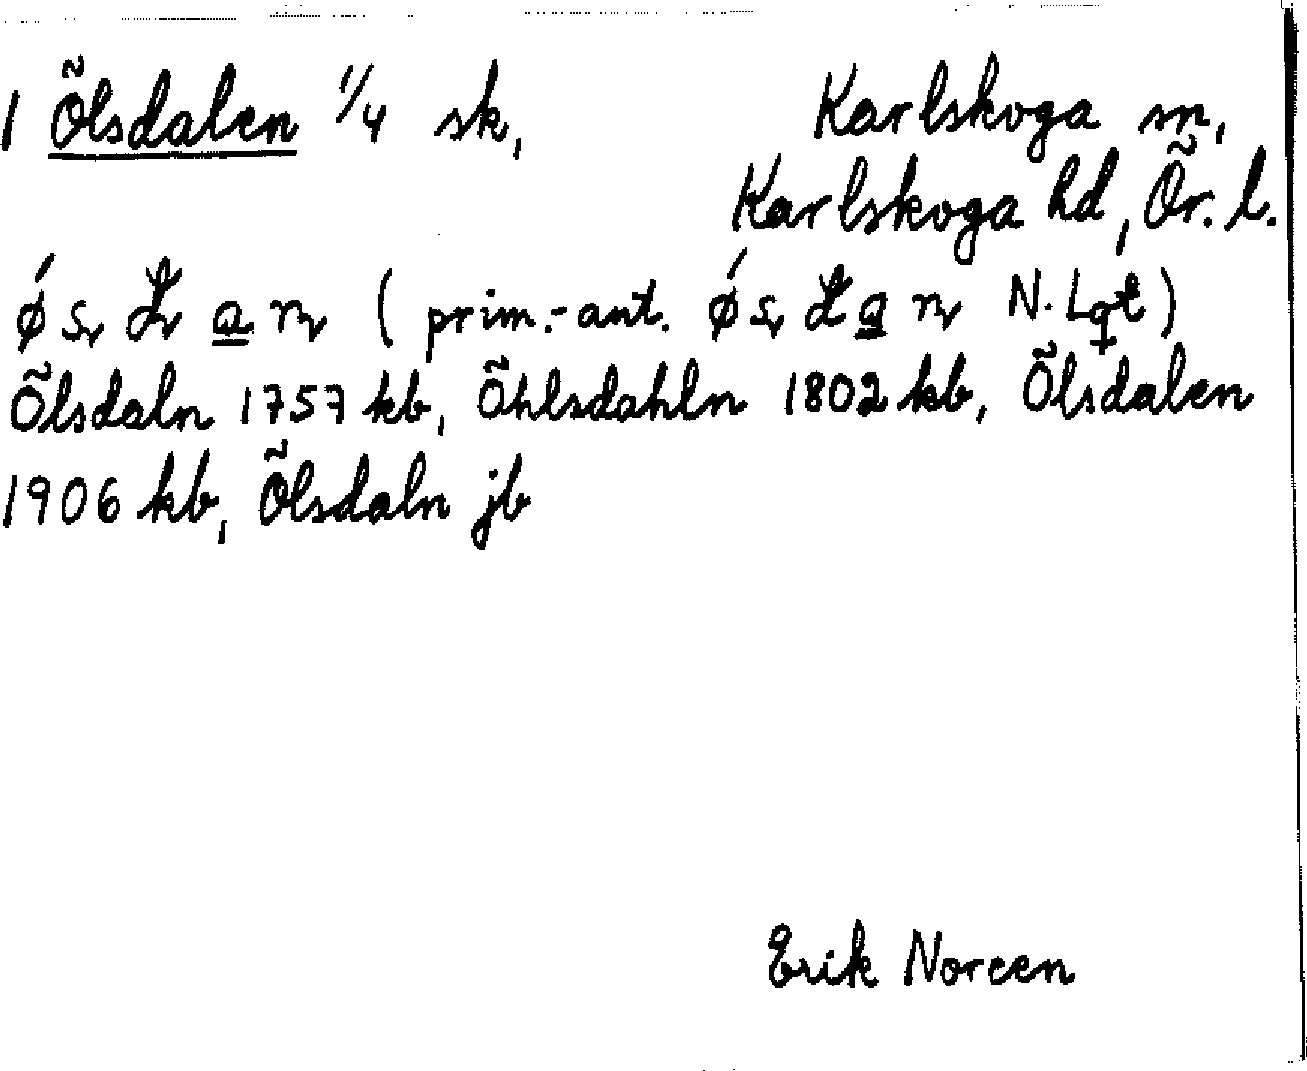 1 Ölsdalen 1/4 sk, Karlskoga sn,
Karlskoga hd, Ör. l.
(prim.-ant. N. Lqt)
Ölsdaln 1757 kb, Öhlsdahln 1802 kb, Ölsdalen
1906 kb, Ölsdaln jb
Erik Noreen